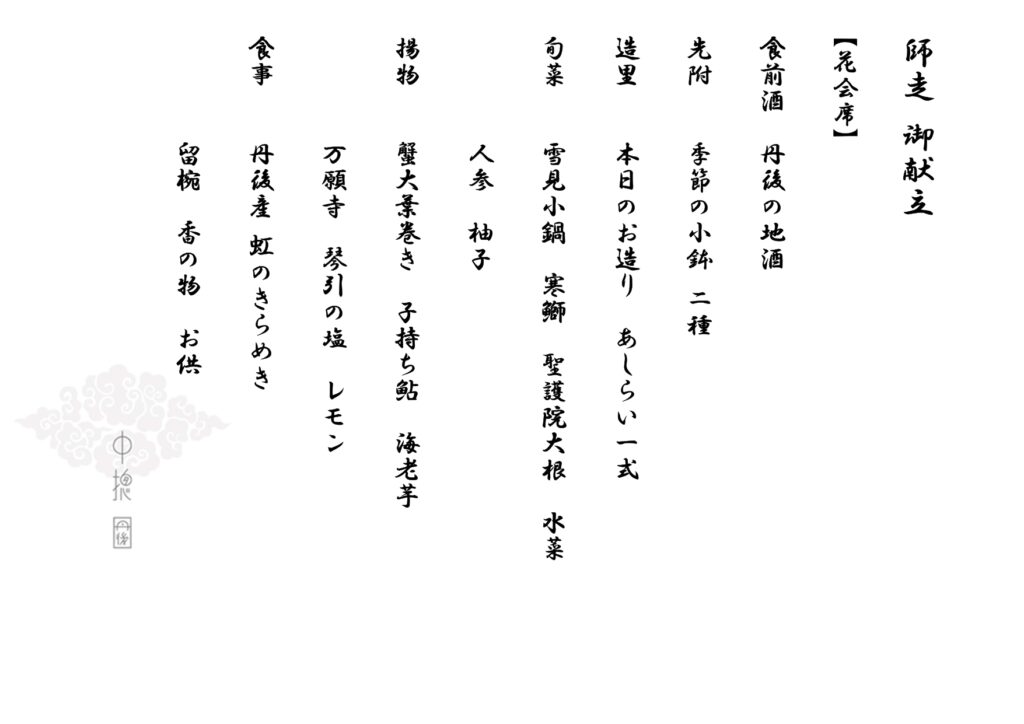 師走 御献立
【花会席】
食前酒 丹後の地酒
先附 季節の小鉢 二種
造里 本日のお造り あしらい一式
旬菜 雪見小鍋 寒鰤 聖護院大根 水菜
人参 柚子
揚物 蟹大葉巻き 子持ち鮎 海老芋
万願寺 琴引の塩 レモン
食事 丹後産 虹のきらめき
留椀 香の物 お供
丹後